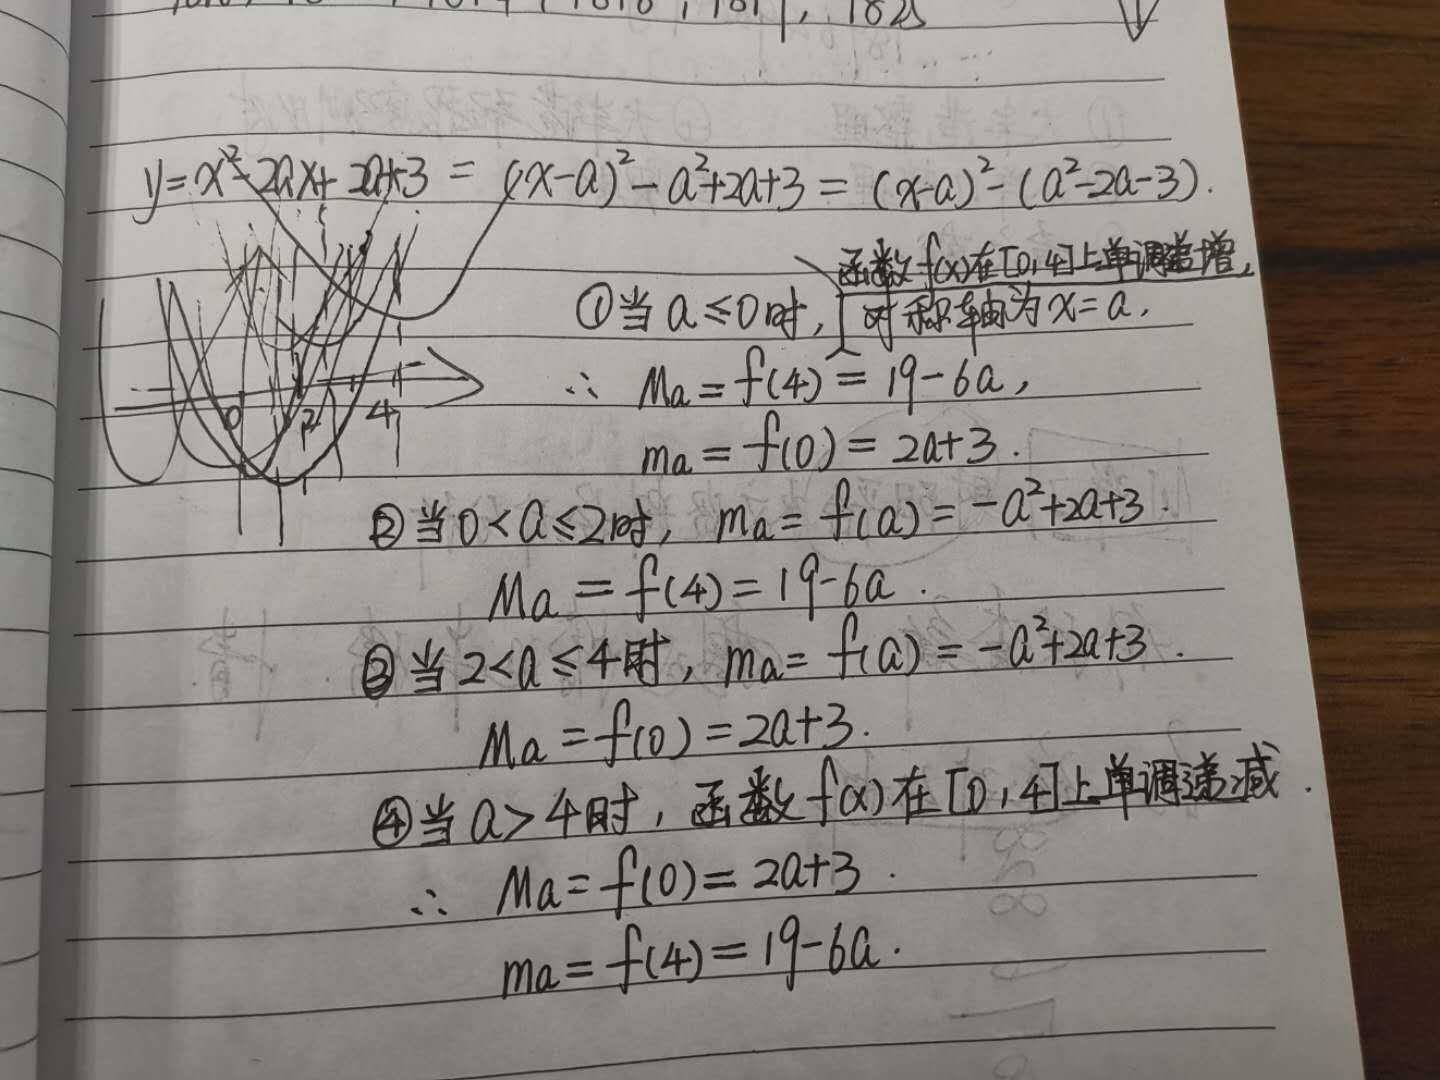 1825
y=x²-2ax+2a+3 = (x-a)²-a²+2a+3 = (x-a)²-(a²-2a-3).
函数f(x)在[0,4]上单调递增,
①当a≤0时, 对称轴为x=a,
∴ Ma=f(4)=19-6a,
ma=f(0)=2a+3.
0 2 4
②当0<a≤2时, ma=f(a)=-a²+2a+3.
Ma=f(4)=19-6a.
③当2<a≤4时, ma=f(a)=-a²+2a+3.
Ma=f(0)=2a+3.
④当a>4时, 函数f(x)在[0,4]上单调递减.
∴ Ma=f(0)=2a+3.
ma=f(4)=19-6a.